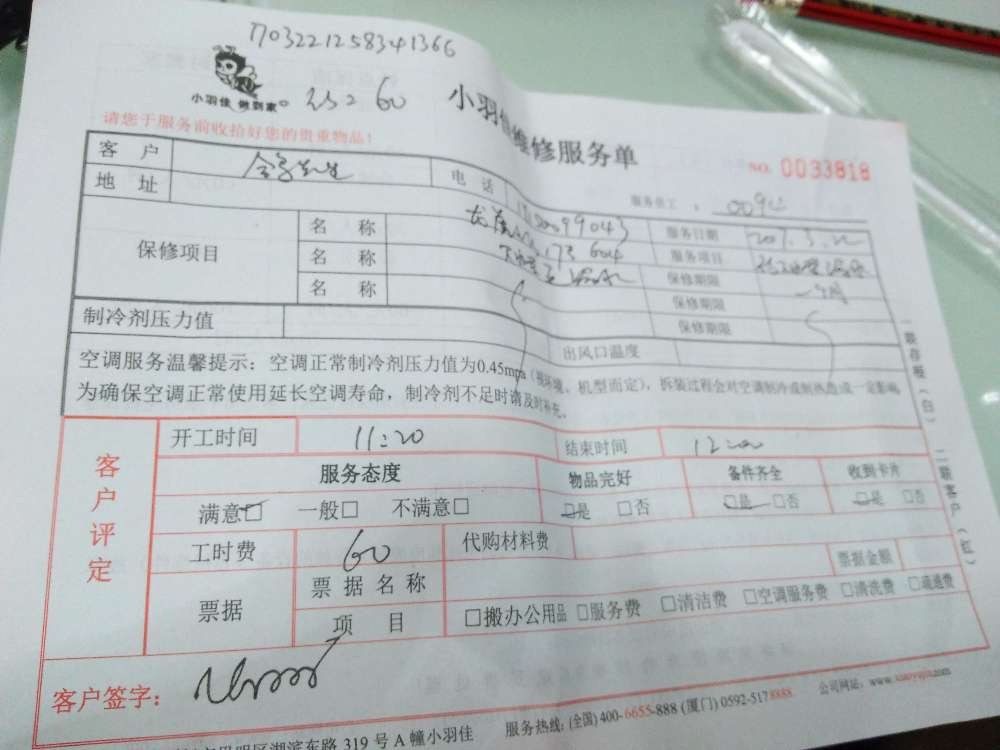 1703221258341366
小羽佳 做到家。 60
小羽佳维修服务单
请您于服务前收拾好您的贵重物品!
NO. 0033818
客 户 先生 电 话
服务员工:
地 址 服务日期
保修项目 名 称 服务项目
名 称 保修期限
名 称 保修期限
保修期限
制冷剂压力值 出风口温度
空调服务温馨提示:空调正常制冷剂压力值为0.45mpa(视环境、机型而定),拆装过程会对空调制冷或制热造成一定影响
为确保空调正常使用延长空调寿命,制冷剂不足时请及时补充。
客户评定
开工时间 11:20 结束时间 12:00
服务态度 物品完好 备件齐全 收到卡片
满意□ 一般□ 不满意□ □是 □否 □是 □否 □是 □否
工时费 60 代购材料费
票据 票据名称 票据金额
项 目 □搬办公用品 □服务费 □清洁费 □空调服务费 □清洗费 □疏通费
客户签字:
一联存根(白) 二联客户(红)
明区湖滨东路 319 号 A 幢小羽佳 服务热线:(全国)400-6655-888 (厦门) 0592-5178888 公司网址:www.xiaoyujia.com